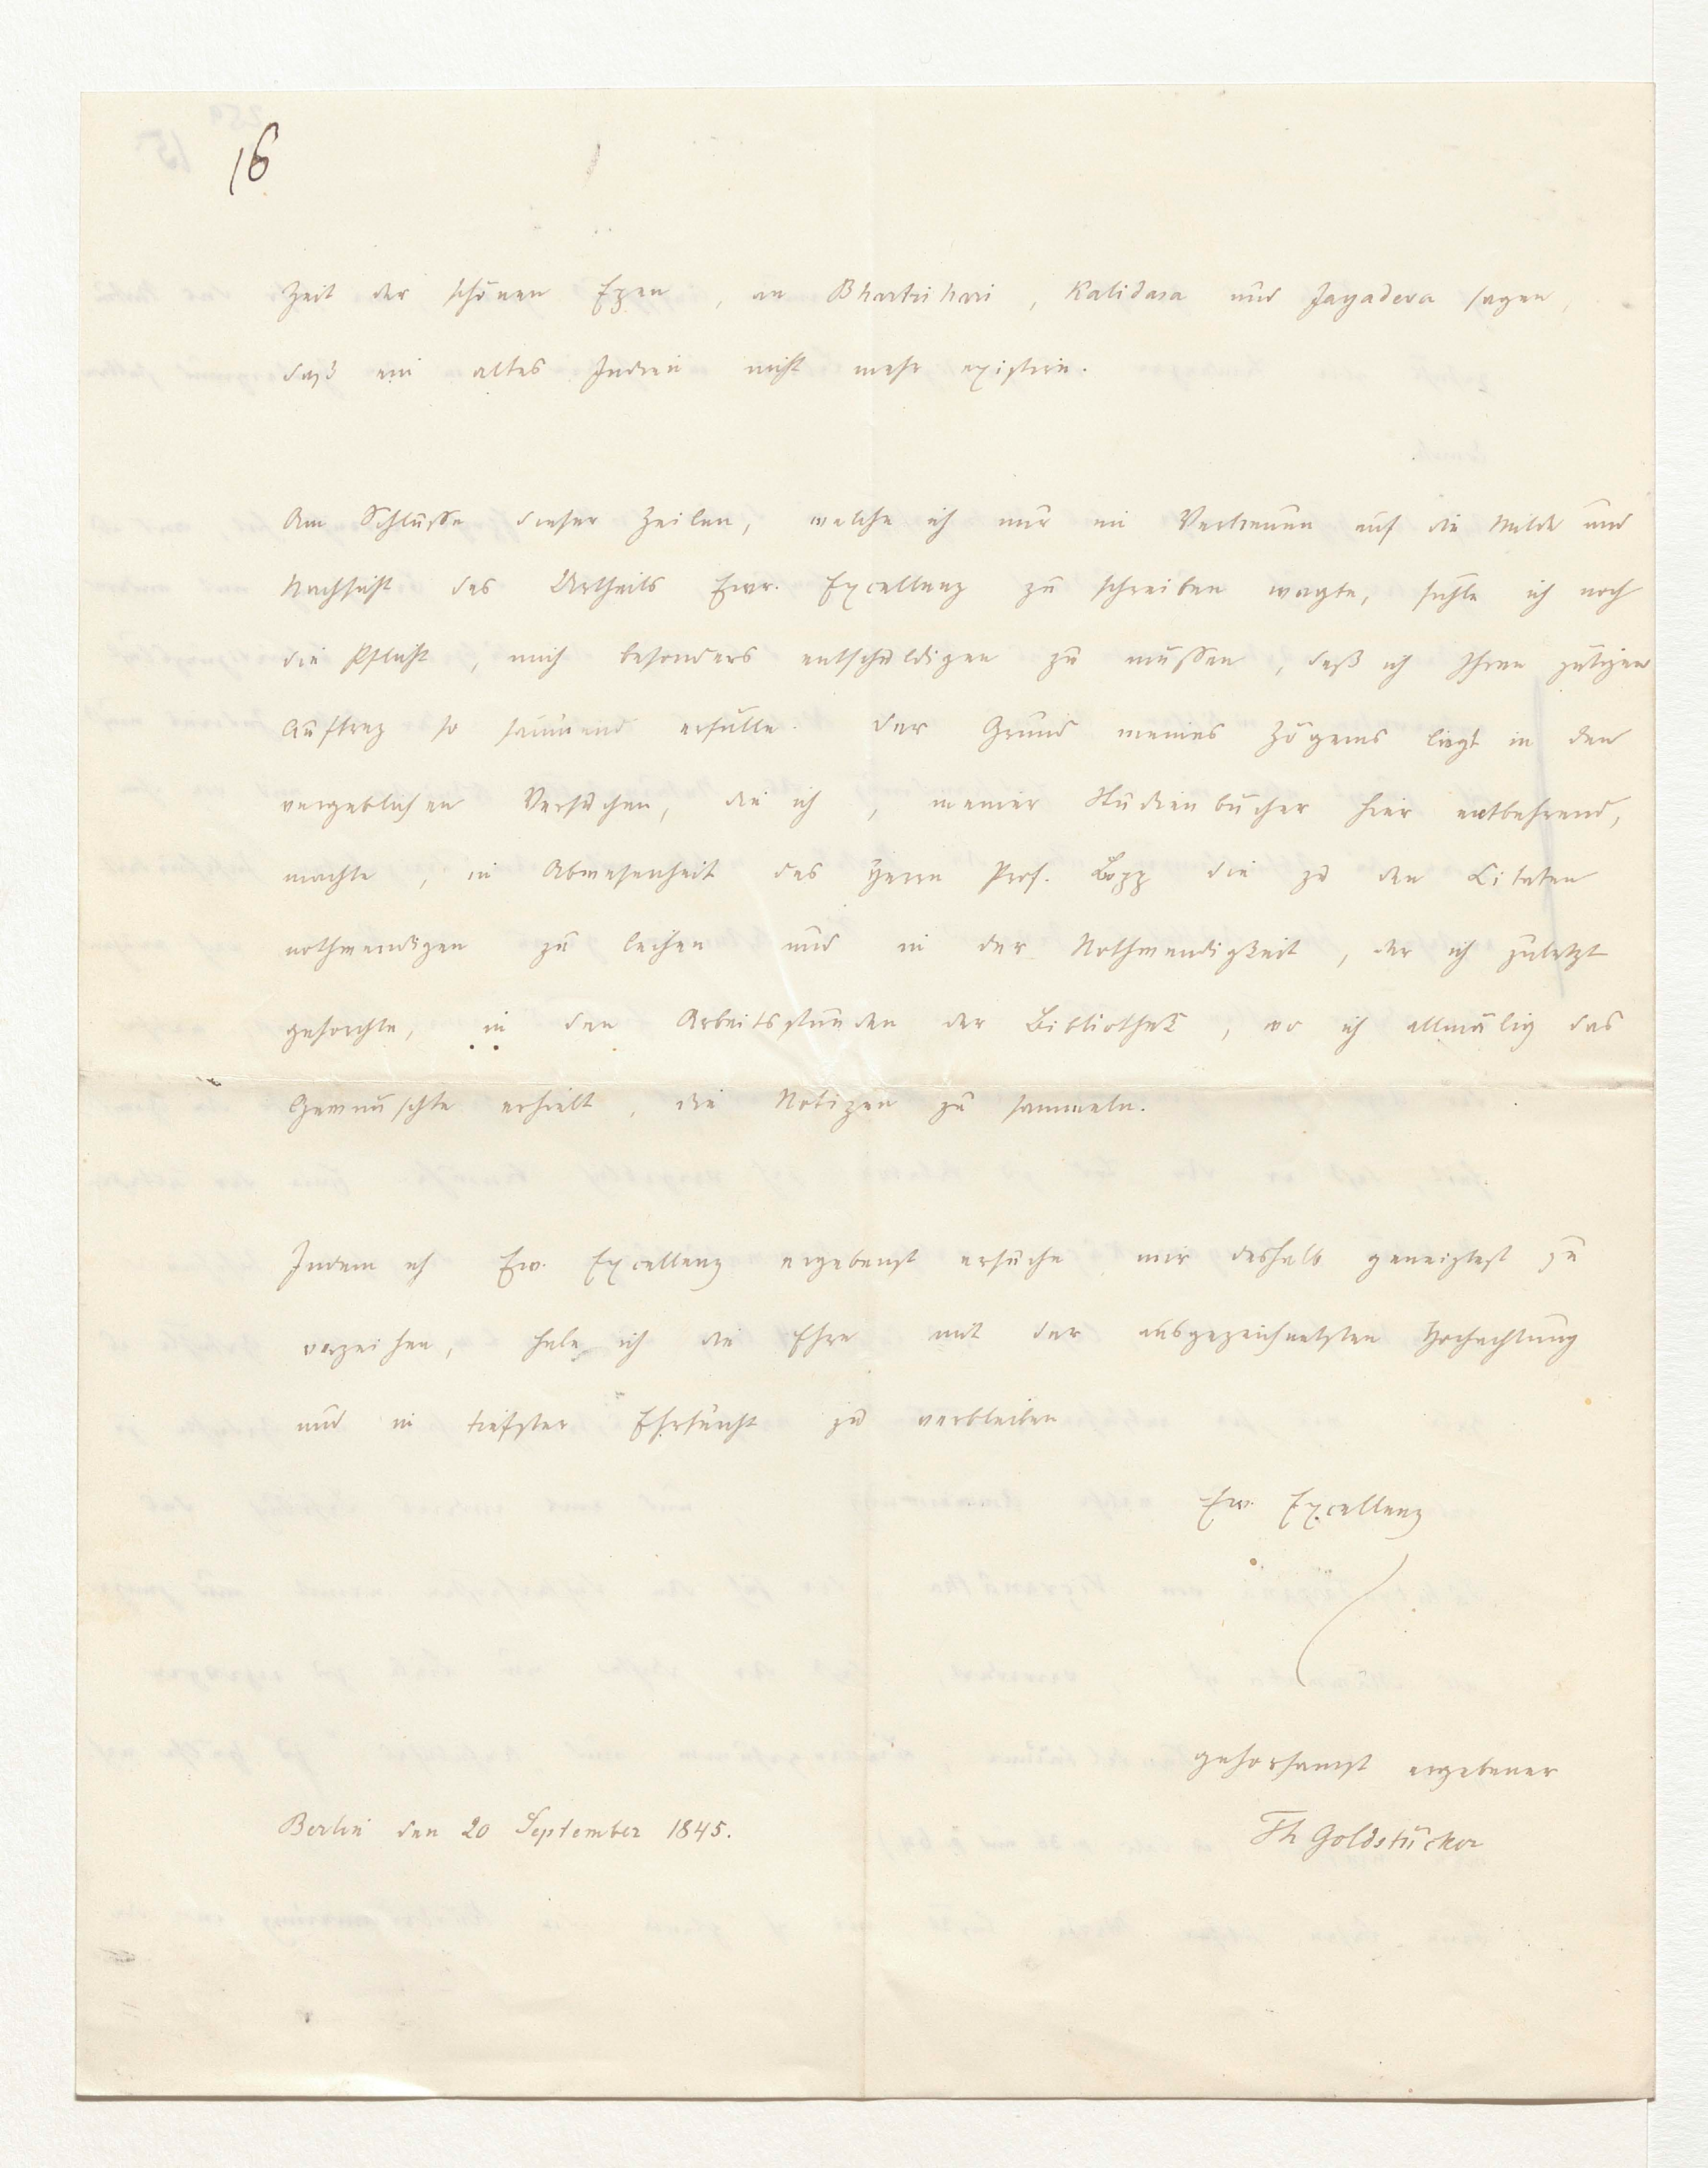 16
Zeit der schönen Epen, an Bhartrihari, Kalidasa und Jayadeva sagen,
daß ein altes Indien nicht mehr existire.
Am Schlusse dieser Zeilen, welche ich nur im Vertrauen auf die Milde und
Nachsicht des Urtheils Ewr. Excellenz zu schreiben wagte, fühle ich noch
die Pflicht, mich besonders entschuldigen zu müssen, daß ich Ihren gütigen
Auftrag so säumend erfülle. Der Grund meines Zögerns liegt in den
vergeblichen Versuchen, die ich, meiner Studienbücher hier entbehrend,
machte, in Abwesenheit des Herrn Prof. Bopp die zu den Citaten
nothwendigen zu leihen und in der Nothwendigkeit, der ich zuletzt
gehorchte, in den Arbeitsstunden der Bibliothek, wo ich allmälig das
Gewünschte erhielt, die Notizen zu sammeln.
Indem ich Ew. Excellenz ergebenst ersuche mir deshalb geneigtest zu
verzeihen, habe ich die Ehre mit der ausgezeichnetsten Hochachtung
und in tiefster Ehrfurcht zu verbleiben
Ew. Excellenz
gehorsamst ergebener
Berlin den 20 September 1845.
Th Goldstücker